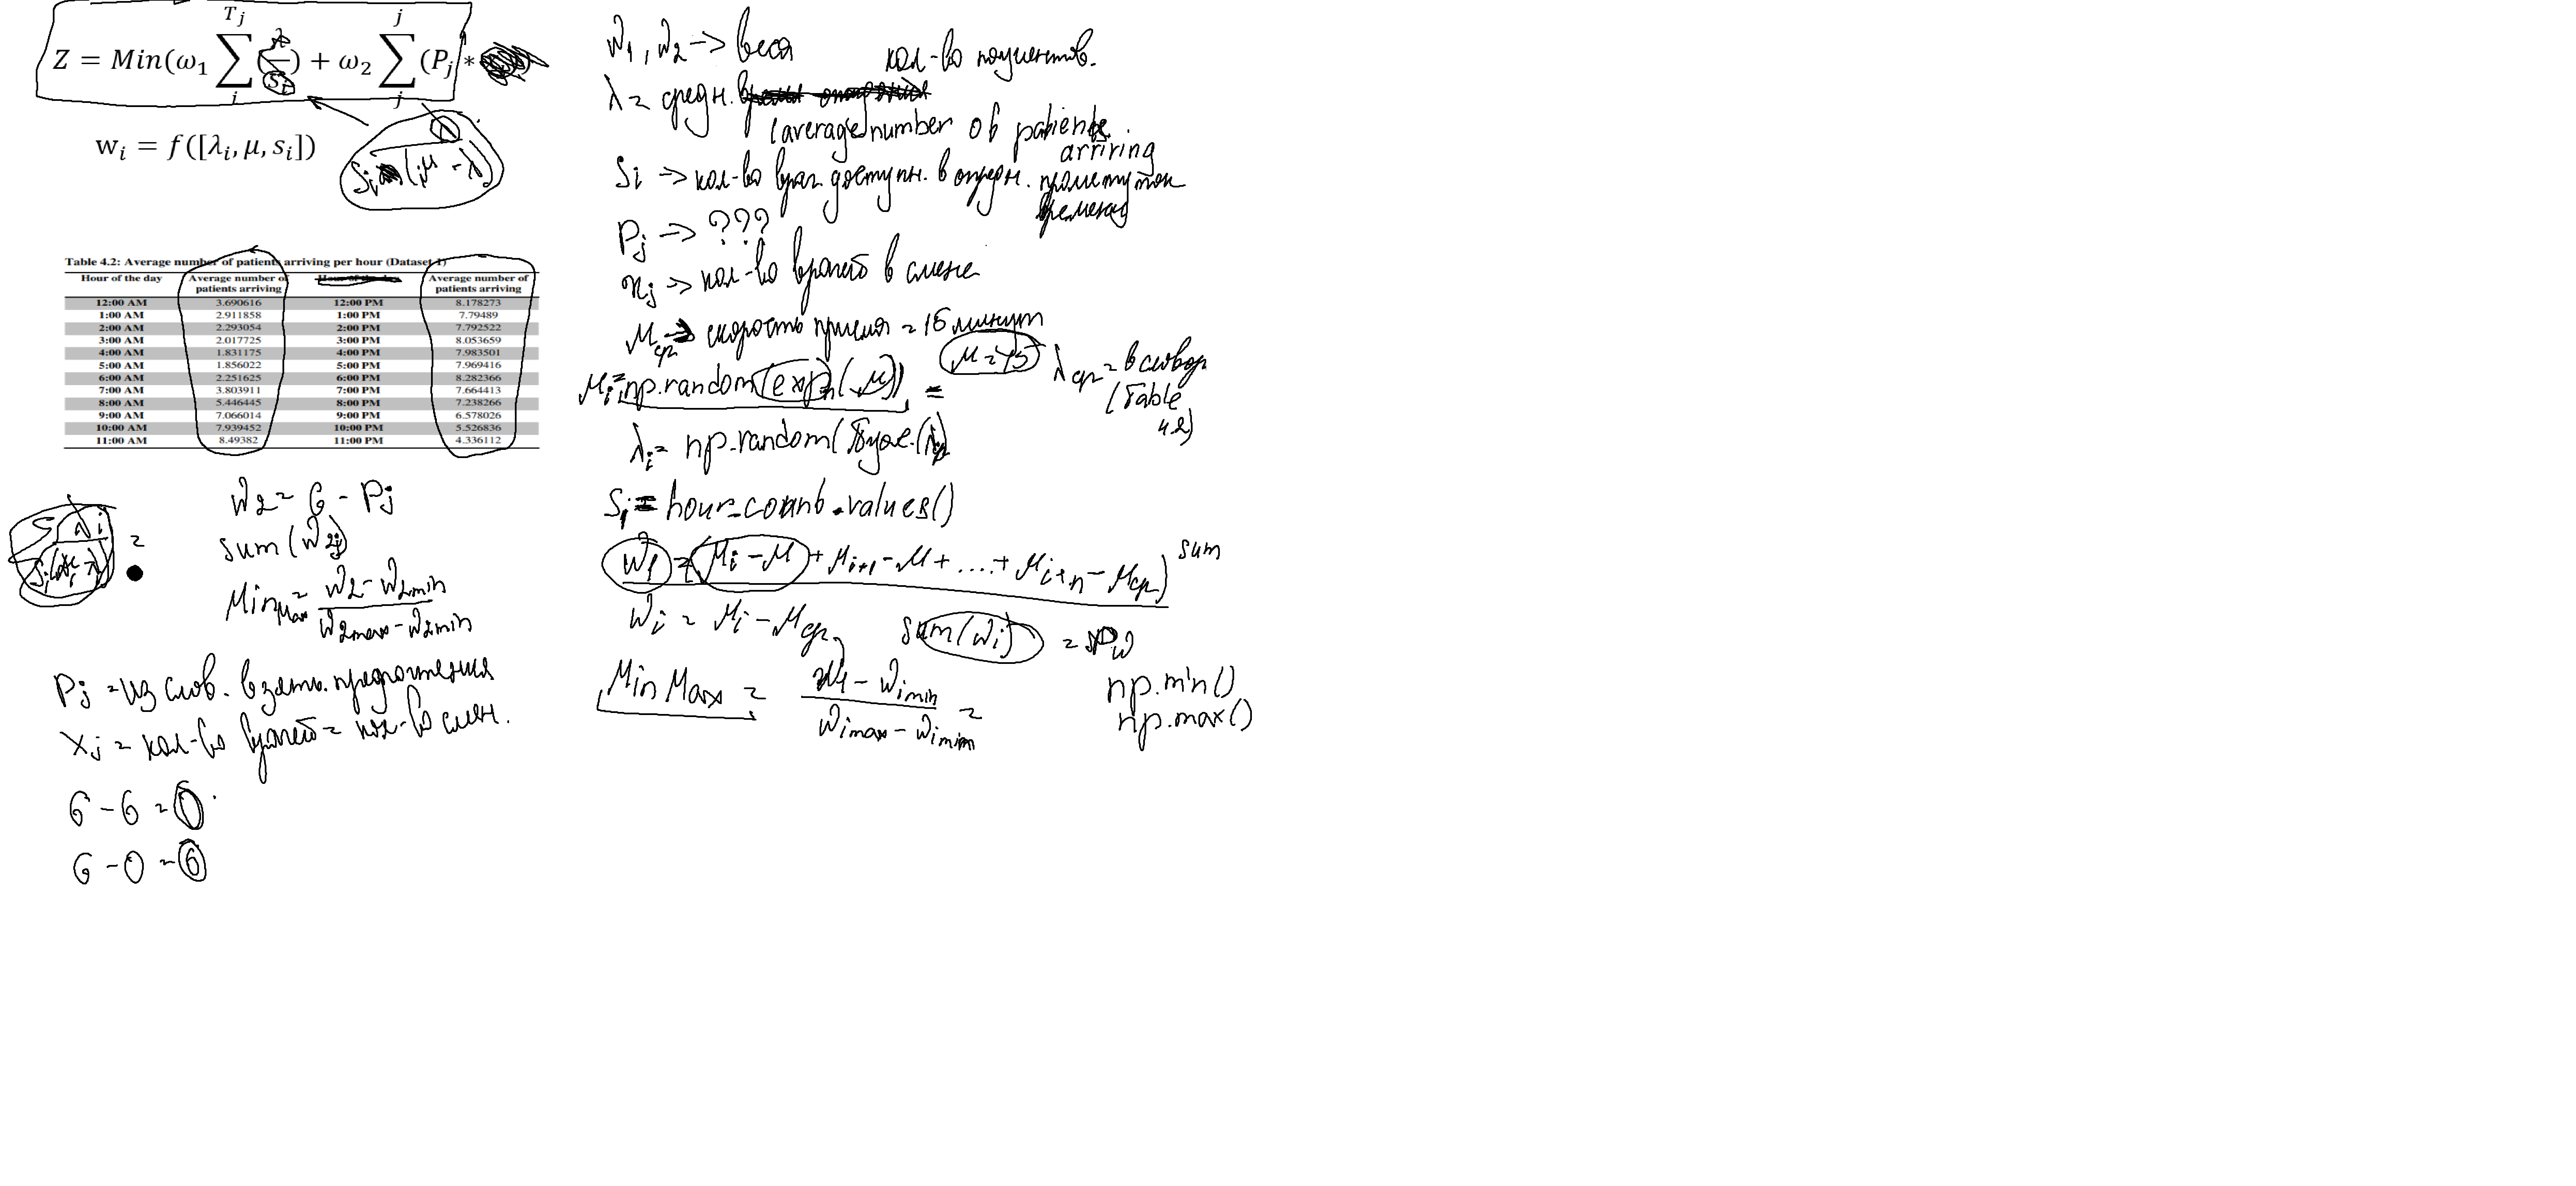 Z = Min(ω₁ ∑ᵢ^Tj (λ/Sᵢ) + ω₂ ∑ⱼ^j (Pⱼ *
wᵢ = f([λᵢ, μ, sᵢ])
Sᵢ (μ - λ)
Table 4.2: Average number of patients arriving per hour (Dataset 1)
Hour of the day Average number of patients arriving Average number of patients arriving
12:00 AM 3.690616 12:00 PM 8.178273
1:00 AM 2.911858 1:00 PM 7.79489
2:00 AM 2.293054 2:00 PM 7.792522
3:00 AM 2.017725 3:00 PM 8.053659
4:00 AM 1.831175 4:00 PM 7.983501
5:00 AM 1.856022 5:00 PM 7.969416
6:00 AM 2.251625 6:00 PM 8.282366
7:00 AM 3.803911 7:00 PM 7.664413
8:00 AM 5.446445 8:00 PM 7.238266
9:00 AM 7.066014 9:00 PM 6.578026
10:00 AM 7.939452 10:00 PM 5.526836
11:00 AM 8.49382 11:00 PM 4.336112
W2 = 6 - Pj
sum(W2j)
MinMax = (W2 - W2min) / (W2max - W2min)
Pj = из слов. взять. предпочтения
Xj = кол-во врачей = кол-во смен.
6 - 6 = 0
6 - 0 = 6
W1, W2 -> веса
λ = средн. кол-во пациентов.
(average number of patients
arriving
Si -> кол-во врач. доступн. в опред. промежуток
времени
Pj -> ???
xj -> кол-во врачей в смене
μср -> скорость приема = 15 минут
μ = 15
λср = в словар
(Table
4.2)
μi = np.random(exp(μ)) =
λi = np.random(
Si = hour_count.values()
W1 = (μi - μ + μi+1 - μ + .... + μi+n - μср) sum
Wi = μi - μср,
sum(Wi) =
MinMax = (W1 - Wimin) / (Wimax - Wimin) =
np.min()
np.max()